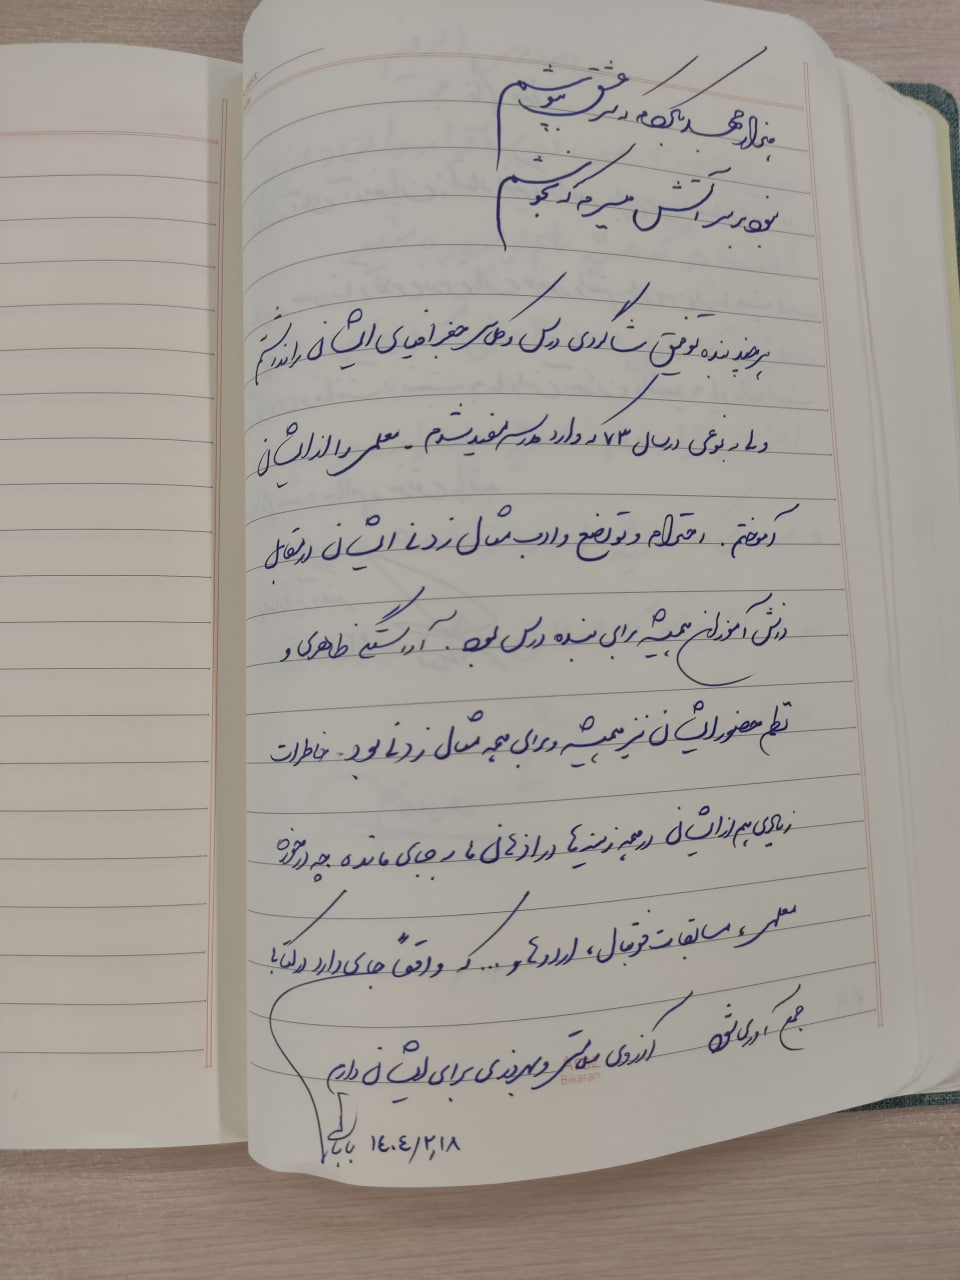 هزار جهد بکردم که سر عشق بپوشم
نبود بر سر آتش میسرم که نجوشم
هر چند بنده توفیق شاگردی درس و کلاس جغرافیای ایشان را نداشتم
ولی به نوعی در سال ۷۳ که وارد مدرسه مفید شدم. معلمی را از ایشان
آموختم. احترام و تواضع و ادب مثال زدنی ایشان در مقابل
دانش آموزان همیشه برای بنده درس بود. آراستگی ظاهری و
نظم حضور ایشان نیز همیشه و برای همه مثال زدنی بود. خاطرات
زیادی هم از ایشان در همه زمینه‌ها در اذهان ما به جای مانده چه در حوزه
معلمی، مسابقات فوتبال، اردوها و... که واقعاً جای دارد در کتابی
جمع آوری شود آرزوی سلامتی و بهروزی برای ایشان دارم
بابائی ۱۴۰۴/۲/۱۸
Bikaran